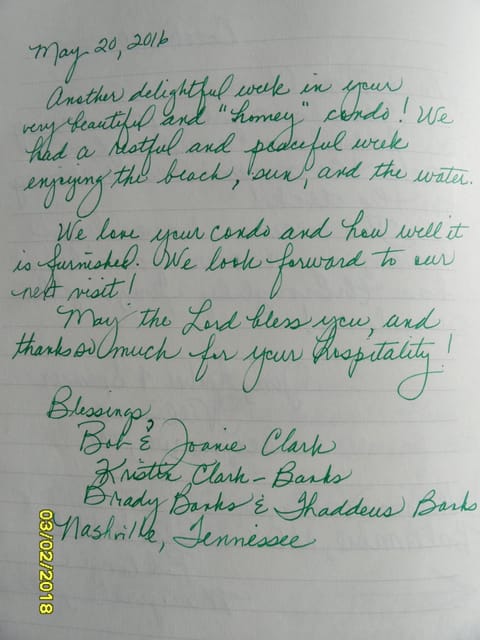 May 20, 2016
Another delightful week in your
very beautiful and "homey" condo! We
had a restful and peaceful week
enjoying the beach, sun, and the water.
We love your condo and how well it
is furnished. We look forward to our
next visit!
May the Lord bless you, and
thanks so much for your hospitality!
Blessings,
Bob & Joanie Clark
Kristin Clark-Banks
Brady Banks & Thaddeus Banks
Nashville, Tennessee
03/02/2018